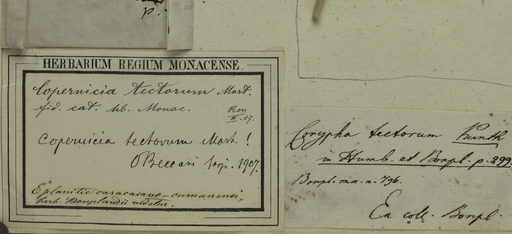 p.
HERBARIUM REGIUM MONACENSE.
Copernicia tectorum Mart.
fid. cat. hb. Monac.
Copernicia tectorum Mart. !
O Beccari 1907.
E planitie caracasano-cumanensi,
herb. Bonplandii
Corypha tectorum Kunth
in Humb. et Bonpl. p. 299
Bonpl. n. 796.
Ex coll. Bonpl.